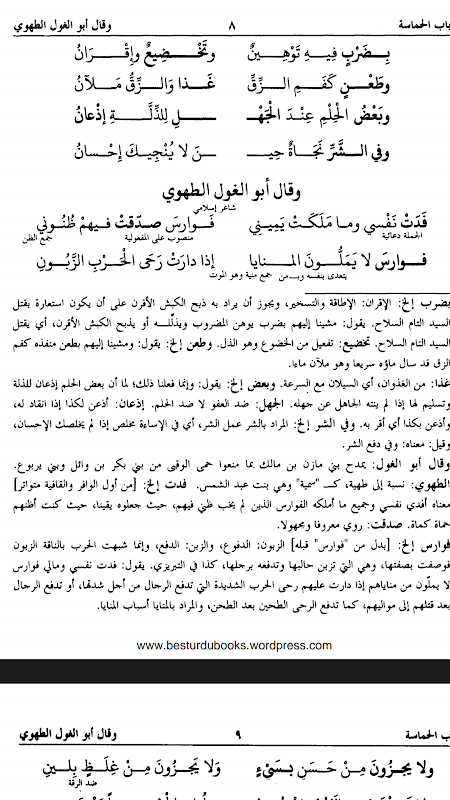 باب الحماسة ٨ وقال أبو الغول الطهوي
بِضَرْبٍ فِيهِ تَوْهِينٌ وتَخْضِيعٌ وإِقْرَانُ
وطَعْنٍ كَفَمِ الزِّقِّ غَدَا وَالزِّقُّ مَلآنُ
وبَعْضُ الْحِلْمِ عِنْدَ الْجَهْـ ـلِ لِلذِّلَّةِ إِذْعانُ
وفي الشَّرِّ نَجَاةٌ حِيـ ـنَ لا يُنْجِيكَ إِحْسانُ
وقال أبو الغول الطهوي
شاعر إسلامي
فَدَتْ نَفْسي وما مَلَكَتْ يَمِيني فَوارِسَ صدّقتْ فيهمْ ظُنُوني
الجملة دعائية منصوب على المفعولية جمع الظن
فَوارِسَ لا يَمَلُّونَ المنايا إذا دارَتْ رَحَى الْحَرْبِ الزَّبُونِ
يتعدى بنفسه وبـ من جمع منية وهو الموت
بضرب إلخ: الإقران: الإطاقة والتسخير، ويجوز أن يراد به ذبح الكبش الأقرن على أن يكون استعارة بقتل
السيد التام السلاح. يقول: مشينا إليهم بضرب يوهن المضروب ويذلّله أو يذبح الكبش الأقرن، أي يقتل
السيد التام السلاح. تخضيع: تفعيل من الخضوع وهو الذل. وطعن إلخ: يقول: ومشينا إليهم بطعن منفذه كفم
الزق قد سال ماؤه سريعا وهو ملآن ماءا.
غذا: من الغذوان، أي السيلان مع السرعة. وبعض إلخ: يقول: وإنما فعلنا ذلك؛ لما أن بعض الحلم إذعان للذلة
وتسليم لها إذا لم ينته الجاهل عن جهله. الجهل: ضد العفو لا ضد الحلم. إذعان: أذعن لكذا إذا انقاد له،
وأذعن بكذا أي أقر به. وفي الشر إلخ: المراد بالشر عمل الشر، أي في الإساءة مخلص إذا لم يخلصك الإحسان،
وقيل: معناه: وفي دفع الشر.
وقال أبو الغول: يمدح بني مازن بن مالك بما منعوا حمى الوقبى من بني بكر بن وائل وبني يربوع.
الطهوي: نسبة إلى طهية، كـ "سمية" وهي بنت عبد الشمس. فدت إلخ: [من أول الوافر والقافية متواتر]
معناه أفدي نفسي وجميع ما أملكه الفوارس الذين لم يخب ظني فيهم، حيث جعلوه يقينا، حيث كنت أظنهم
حماة كماة. صدقت: روي معروفا ومجهولا.
فوارس إلخ: [بدل من "فوارس" قبله] الزبون: الدفوع، والزبن: الدفع، وإنما شبهت الحرب بالناقة الزبون
فوصفت بصفتها، وهي التي تزبن حالبها وتدفعه برجلها، كذا في التبريزي. يقول: فدت نفسي ومالي فوارس
لا يملّون من مناياهم إذا دارت عليهم رحى الحرب الشديدة التي تدفع الرجال من أجل شدتها، أو تدفع الرجال
بعد قتلهم إلى مواليهم، كما تدفع الرحى الطحين بعد الطحن، والمراد بالمنايا أسباب المنايا.
www.besturdubooks.wordpress.com
ب الحماسة ٩ وقال أبو الغول الطهوي
ولا يجزونَ مِنْ حَسَنٍ بسَيْءٍ وَلا يَجزونَ مِنْ غِلَظٍ بِلِينِ
ضد الرقة